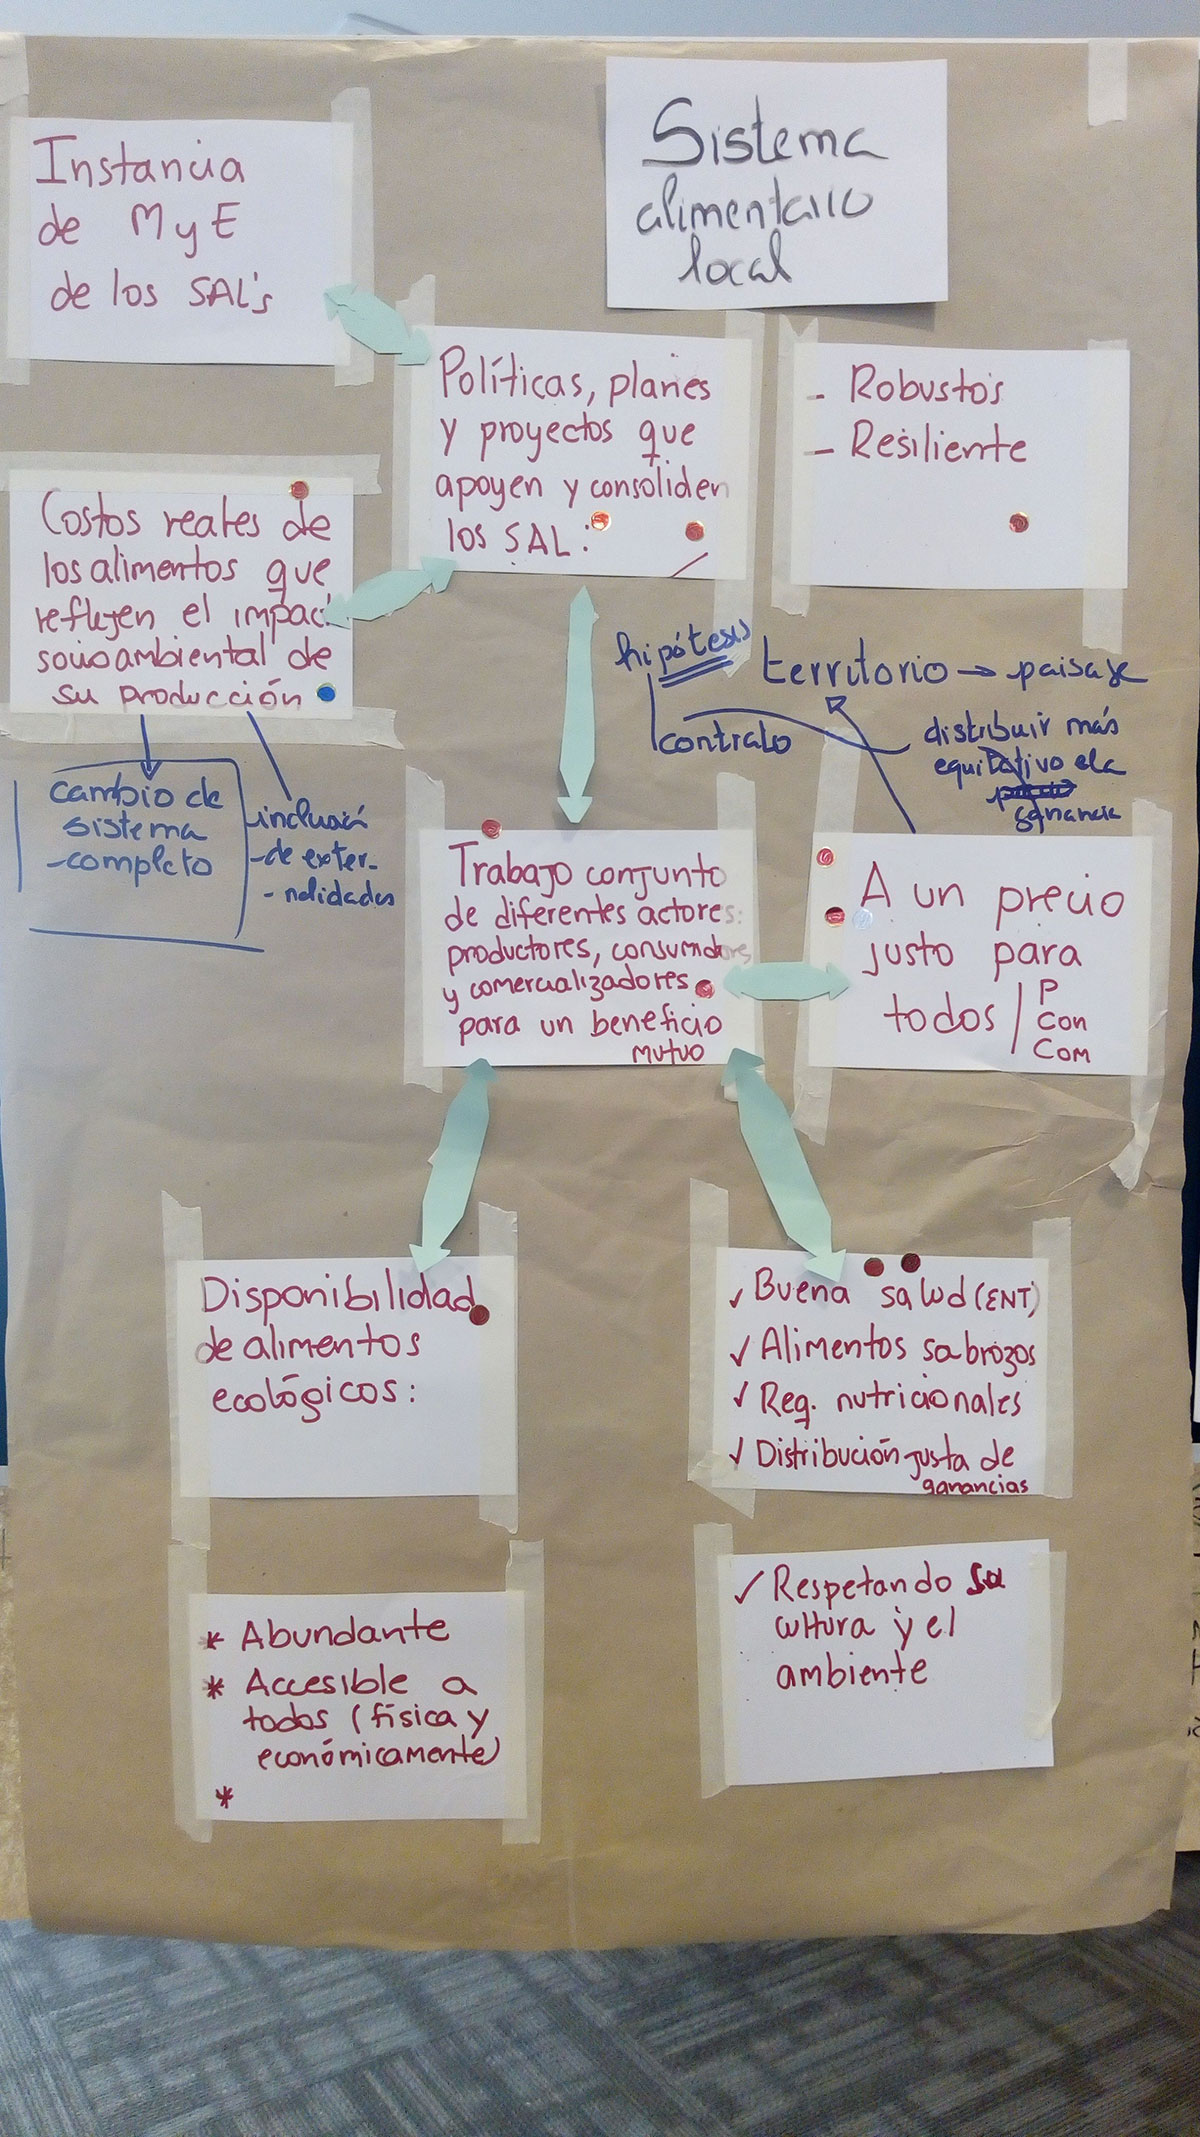 Sistema
alimentario
local
Instancia
de M y E
de los SAL's
Políticas, planes
y proyectos que
apoyen y consoliden
los SAL:
- Robustos
- Resiliente
Costos reales de
los alimentos que
reflejen el impac
socioambiental de
su producción
cambio de
sistema
-completo
inclusión
-de exter-
-nalidades
hipótesis
contrato
territorio → paisaje
distribuir más
equitativo el a
ganancia
Trabajo conjunto
de diferentes actores:
productores, consumidores
y comercializadores
para un beneficio
mutuo
A un precio
justo para
todos / P
Con
Com
Disponibilidad
de alimentos
ecológicos:
* Abundante
* Accesible a
todos (física y
económicamente)
*
✓ Buena salud (ENT)
✓ Alimentos sabrozos
✓ Req. nutricionales
✓ Distribución justa de
ganancias
✓ Respetando su
cultura y el
ambiente